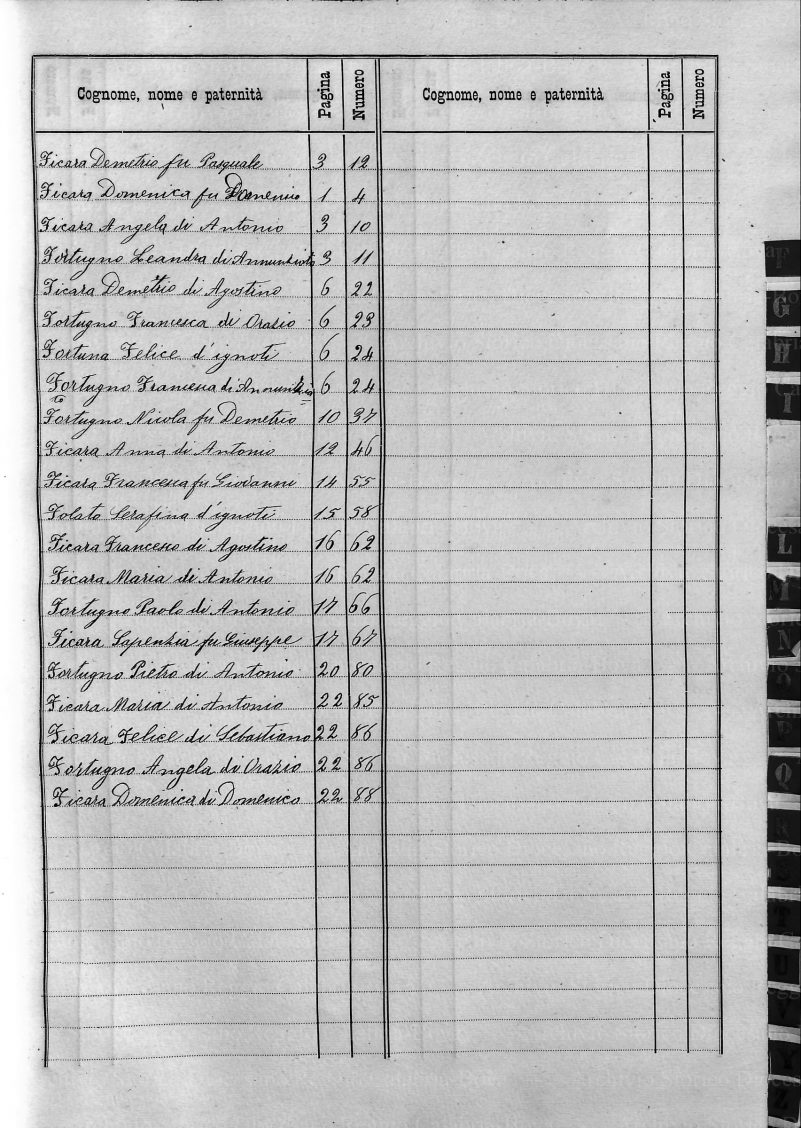 Cognome, nome e paternità Pagina Numero Cognome, nome e paternità Pagina Numero
Ficara Demetrio fu Pasquale 3 12
Ficara Domenica fu Domenico 1 4
Ficara Angela di Antonio 3 10
Fortugno Leandra di Annunziato 3 11
Ficara Demetrio di Agostino 6 22
Fortugno Francesca di Orazio 6 23
Fortuna Felice d'ignoti 6 24
Fortugno Francesca di 6 24
Fortugno Nicola fu Demetrio 10 37
Ficara Anna di Antonio 12 46
Ficara Francesca fu Giovanni 14 55
Folato Serafina d'ignoti 15 58
Ficara Francesco di Agostino 16 62
Ficara Maria di Antonio 16 62
Fortugno Paolo di Antonio 17 66
Ficara Sapenzia fu Giuseppe 17 67
Fortugno Pietro di Antonio 20 80
Ficara Maria di Antonio 22 85
Ficara Felice di Sebastiano 22 86
Fortugno Angela di Orazio 22 86
Ficara Domenica di Domenico 22 88
F
G
H
I
L
M
N
O
P
Q
R
S
T
U
V
Y
Z